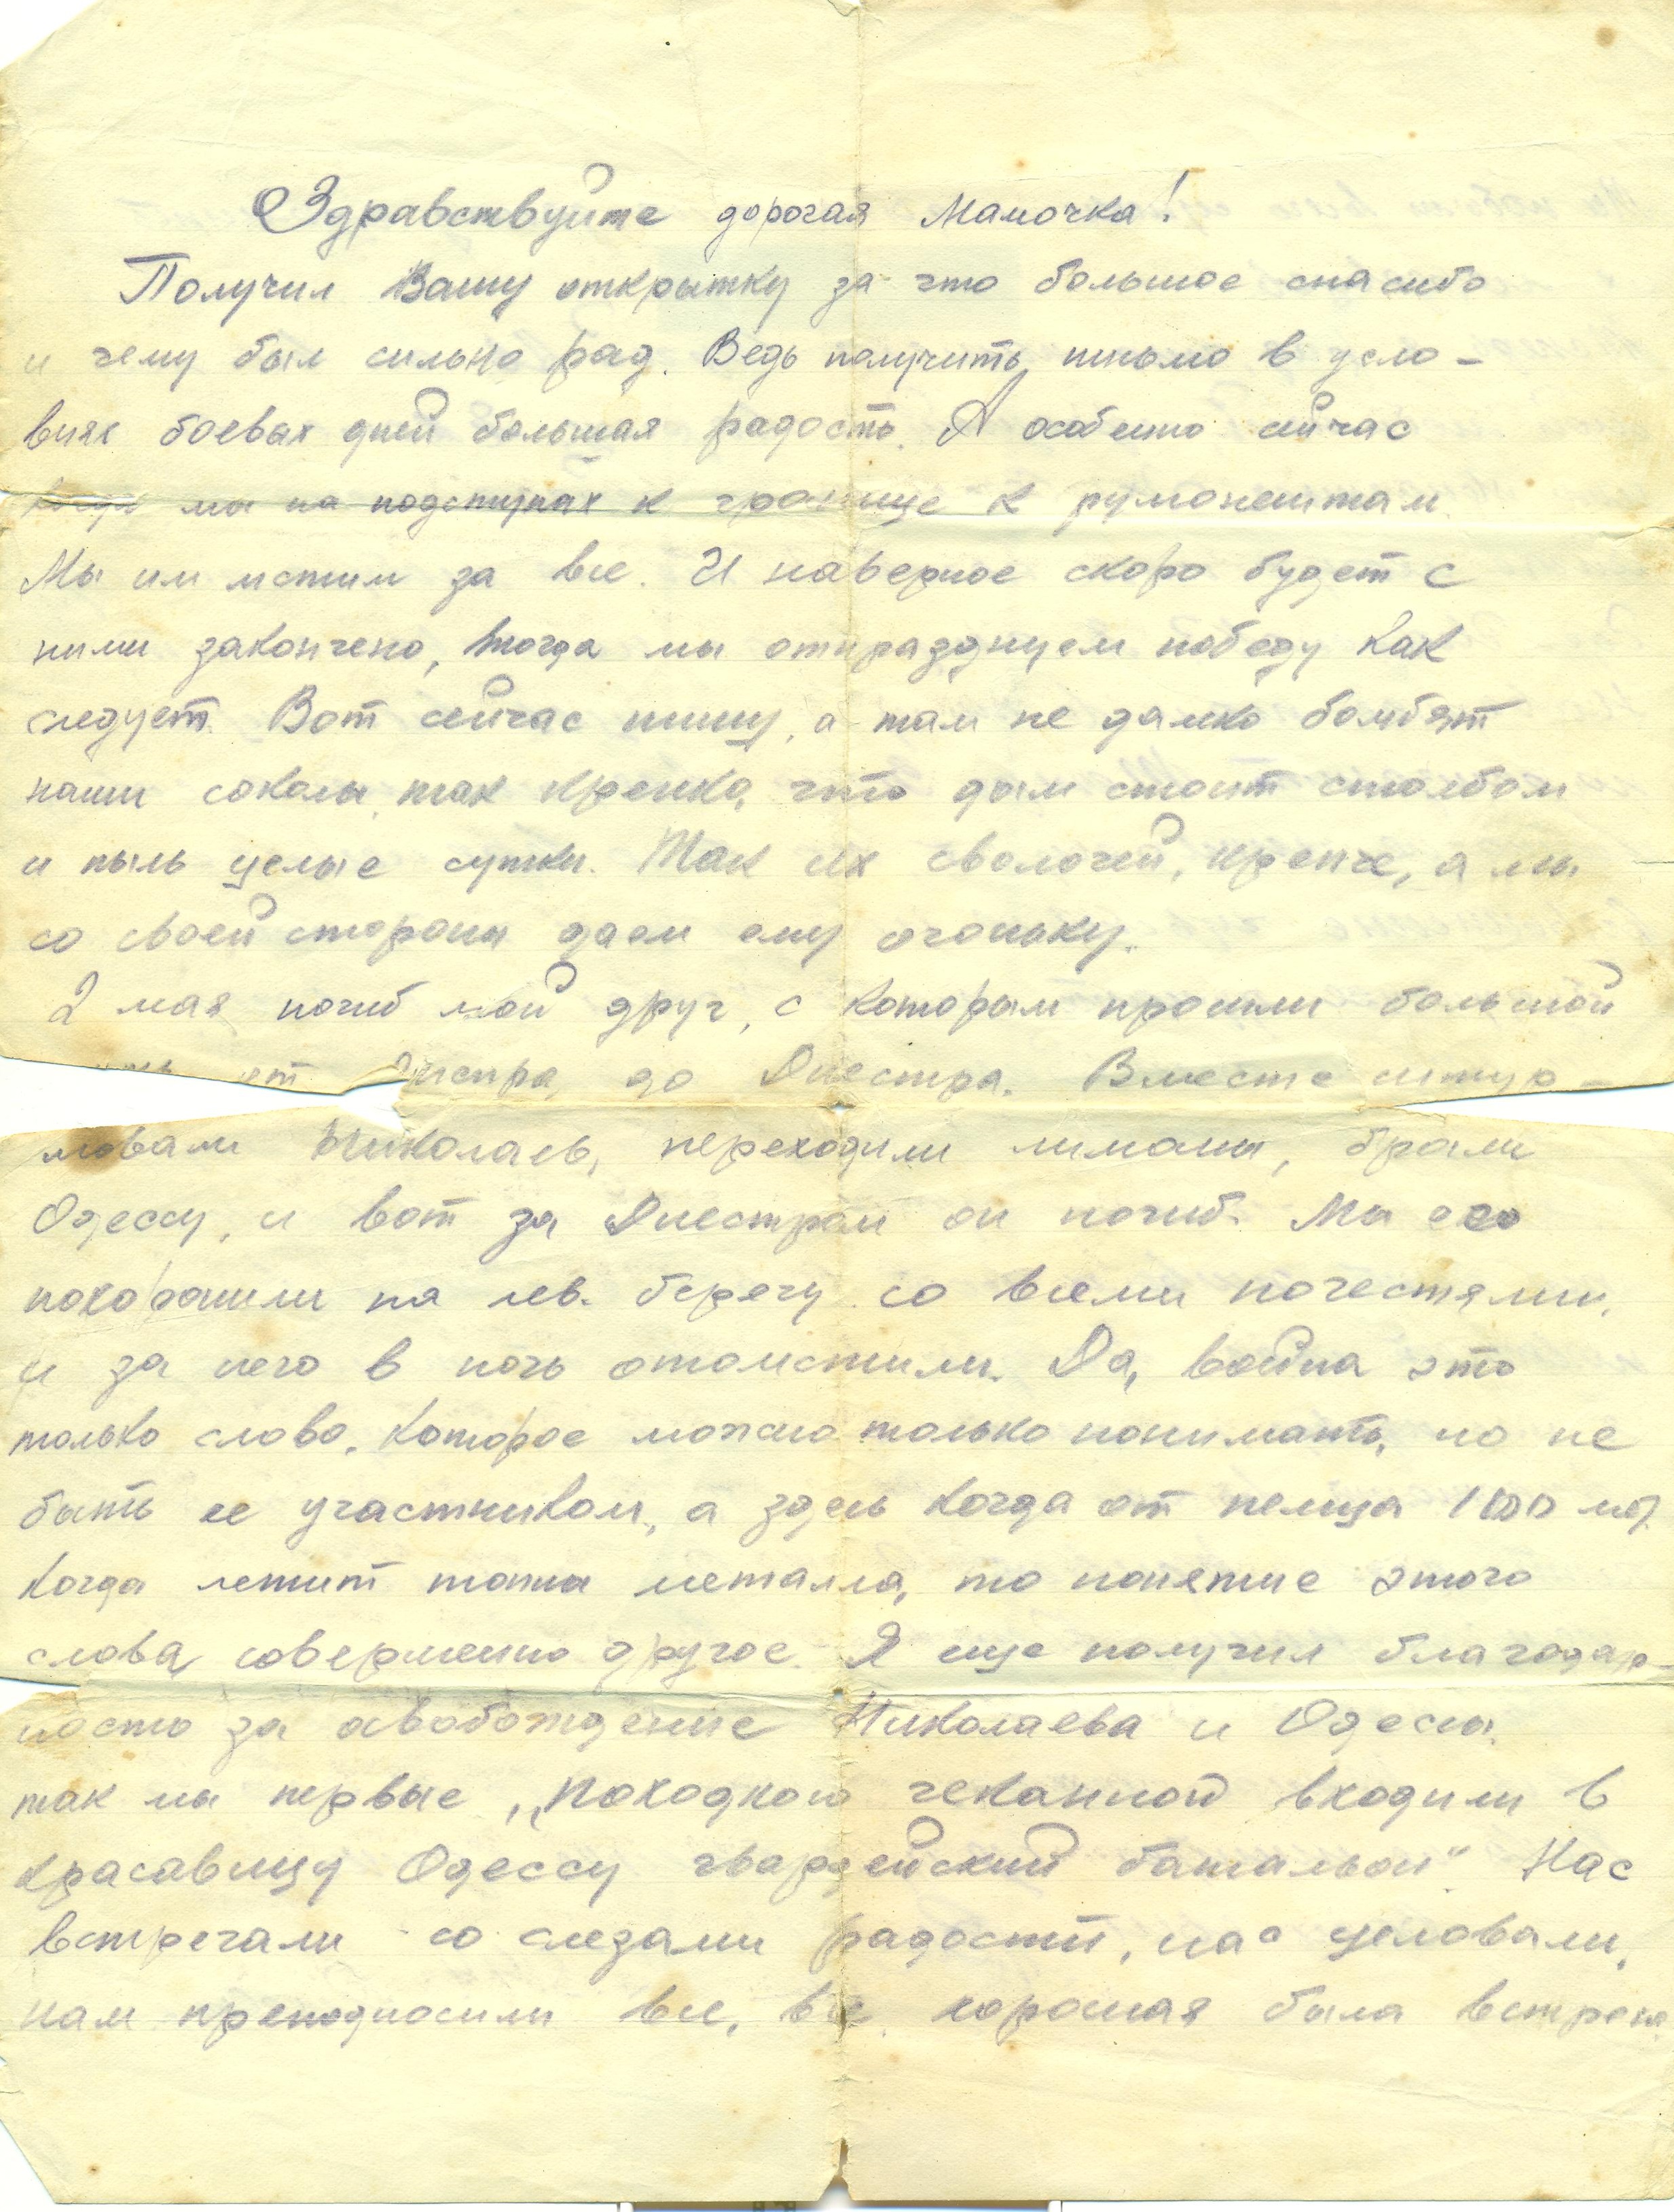 Здравствуйте дорогая Мамочка!
Получил Вашу открытку за что большое спасибо
и чему был сильно рад. Ведь получить письмо в усло-
виях боевых дней большая радость. А особенно сейчас
когда мы на подступах к границе к румонештам.
Мы им мстим за все. И наверное скоро будет с
ними закончено, тогда мы отпразднуем победу как
следует. Вот сейчас пишу, а там не далеко бомбят
наши соколы, так крепко, что дым стоит столбом
и пыль целые сутки. Так их сволочей, крепче, а мы
со своей стороны даем ему огоньку.
2 мая погиб мой друг, с которым прошли большой
от Днепра до Днестра. Вместе штур-
мовали Николаев, переходили лиманы, брали
Одессу, и вот за Днестром он погиб. Мы его
похоронили на лев. берегу со всеми почестями,
и за него в ночь отомстили. Да, война это
только слово, которое можно только понимать, но не
быть ее участником, а здесь когда от немца 100 м.
когда летит тонна металла, то понятие этого
слова совершенно другое. Я еще получил благодар-
ность за освобождение Николаева и Одессы.
так мы первые „походкою чеканной входили в
красавицу Одессу гвардейский батальон" Нас
встречали со слезами радости, нас целовали,
нам преподносили все, все, хорошая была встреча